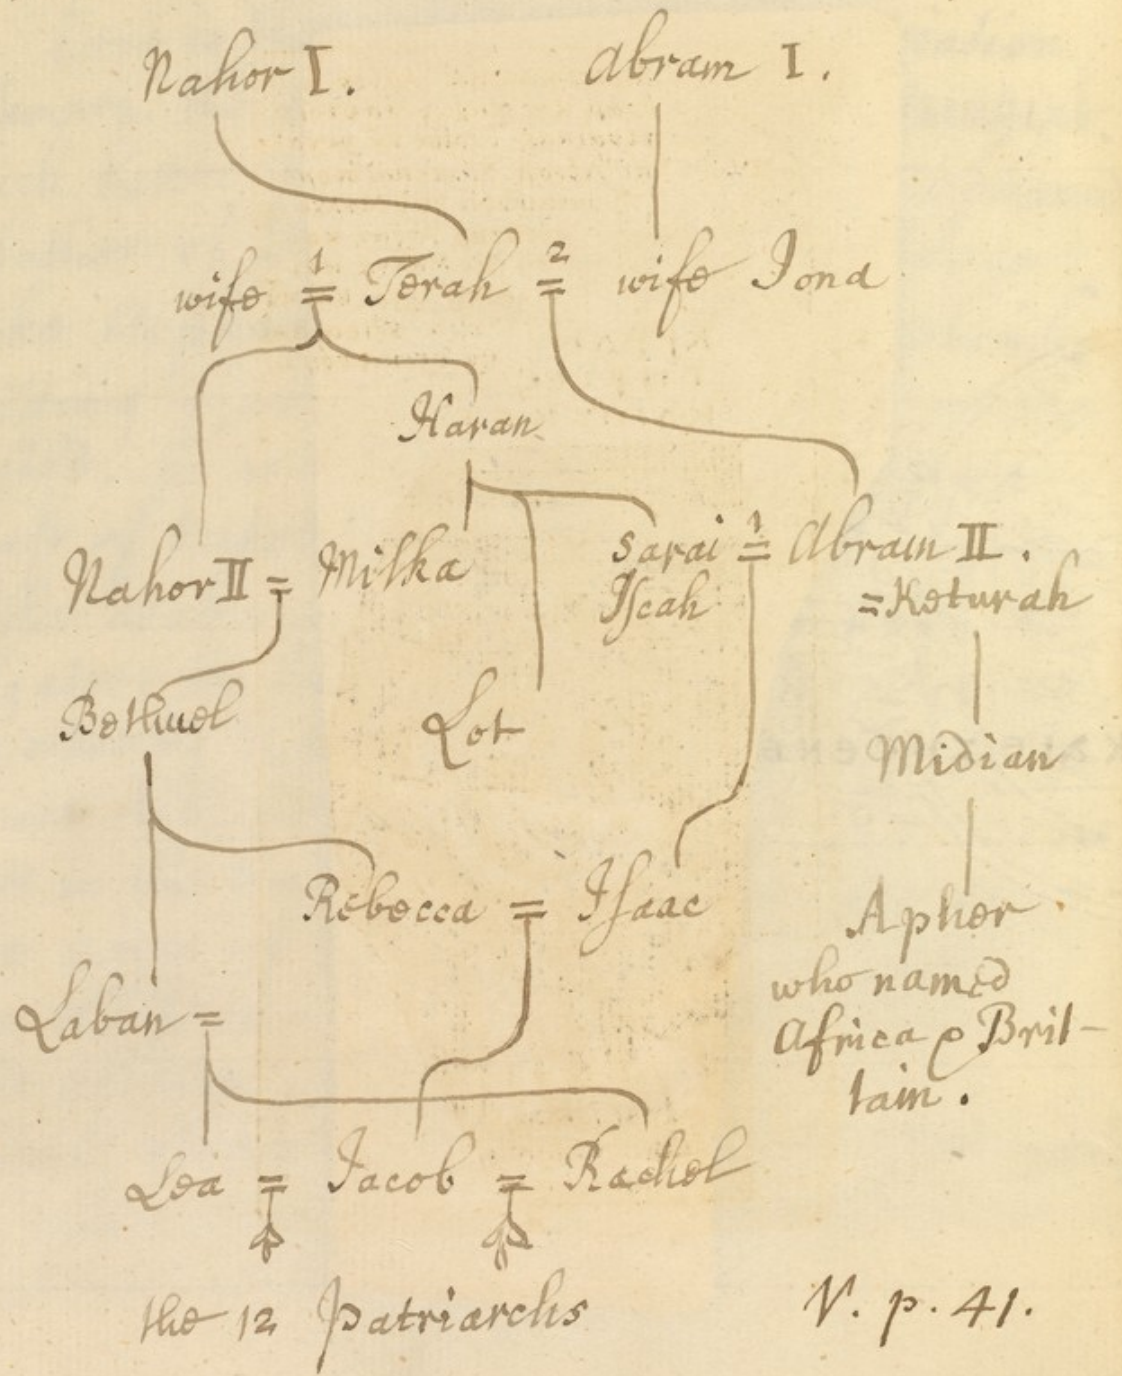 Nahor I. Abram I.
wife 1 = Terah 2 = wife Iona
Haran
Nahor II = Milka Sarai 1 = Abram II.
Iscah = Keturah
Bethuel Lot Midian
Rebecca = Isaac Apher
who named
Laban = Africa & Brit-
tain.
Lea = Jacob = Rachel
the 12 Patriarchs V. p. 41.